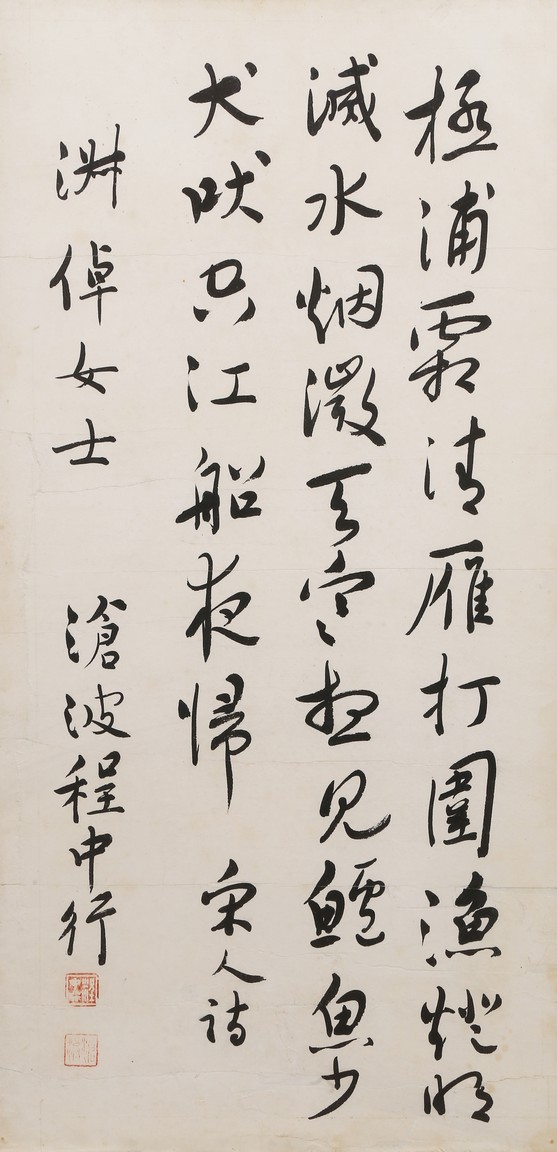 極浦霜清雁打圍漁燈明
滅水烟微天寒想見鱸魚少
犬吠空江船夜歸 宋人詩
倬女士 滄波程中行